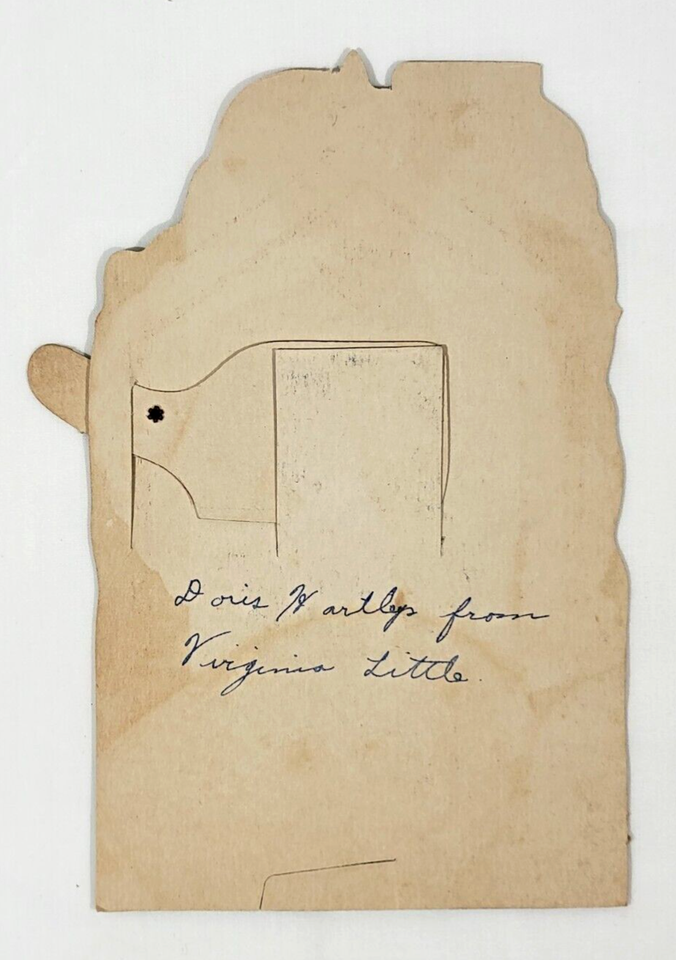 Doris Hartley from
Virginia Little.